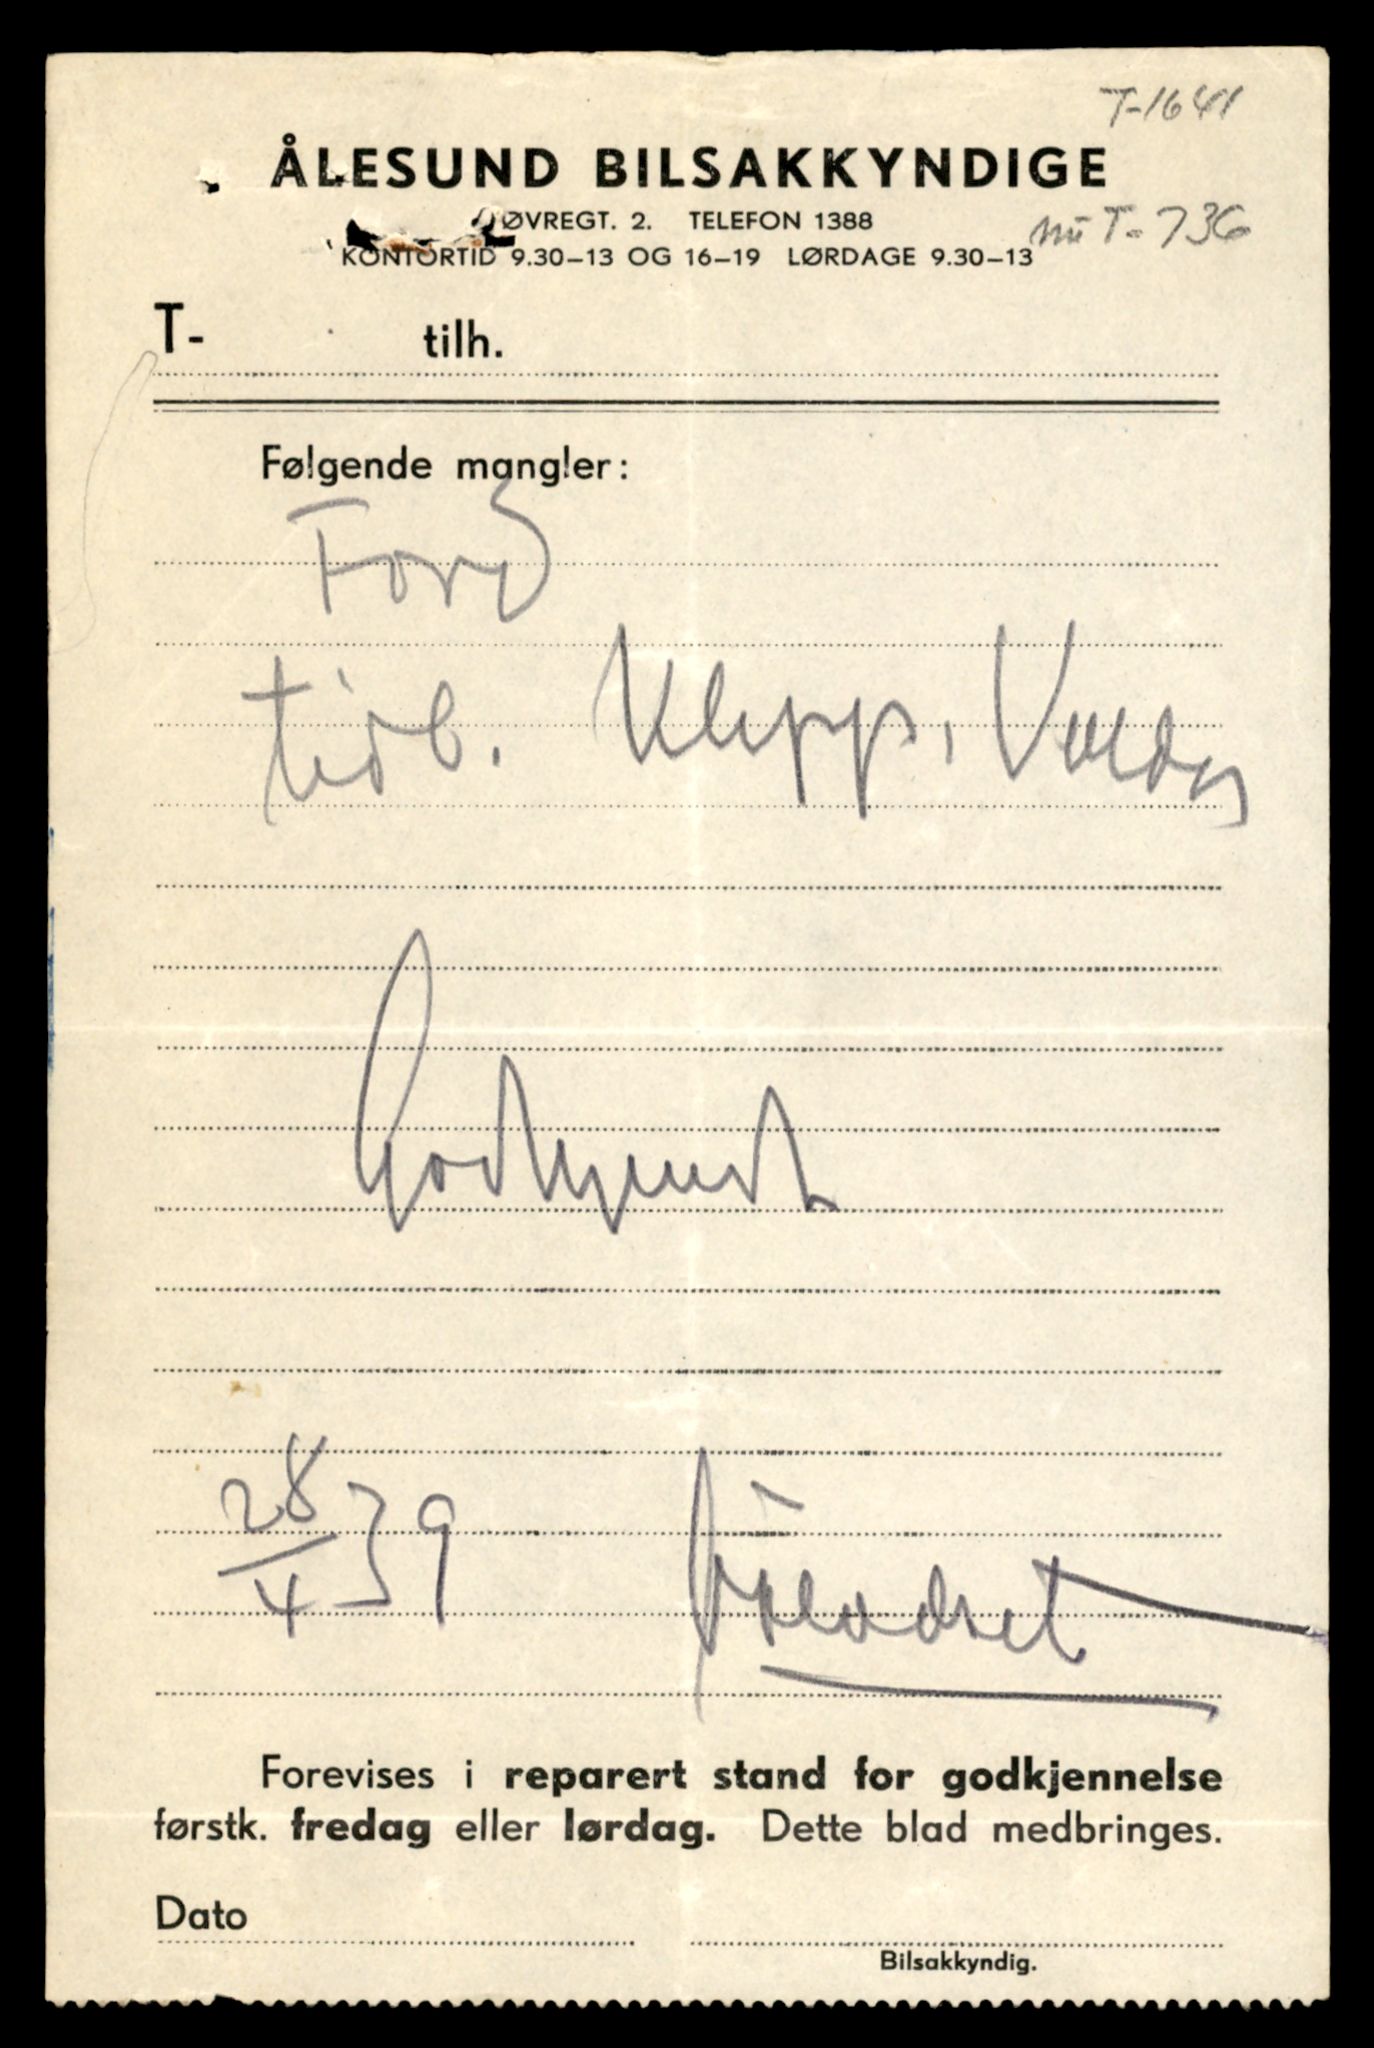 T-1641
ÅLESUND BILSAKKYNDIGE
ØVREGT. 2. TELEFON 1388
nu T-736
KONTORTID 9.30-13 OG 16-19 LØRDAGE 9.30-13
T- tilh.
Følgende mangler:
Ford
tidl. Klepp, Volda
Godkjendt
28/4 39
Forevises i reparert stand for godkjennelse
førstk. fredag eller lørdag. Dette blad medbringes.
Dato
Bilsakkyndig.